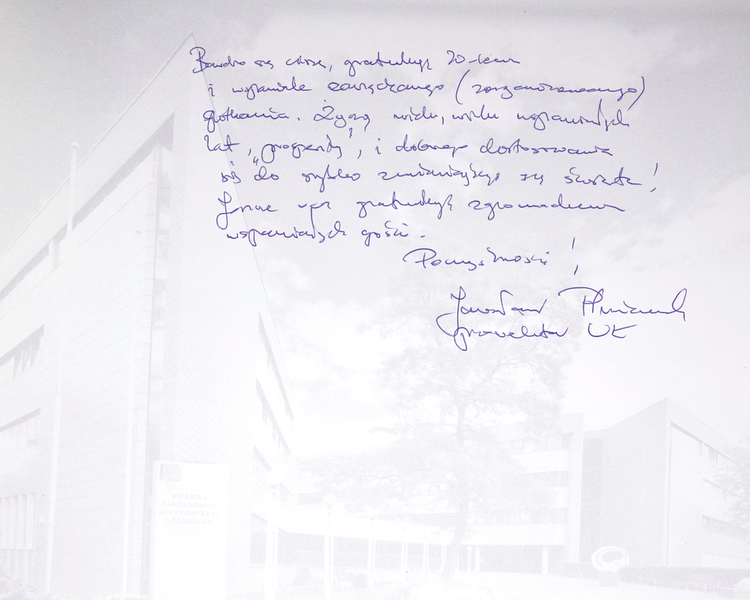 Bardzo się cieszę, gratuluję 20-lecia
i wspaniale zarządzanego (zorganizowanego)
spotkania. Życzę wielu, wielu wspaniałych
lat, "prosperity", i dobrego dostosowania
się do szybko zmieniającego się świata!
Jeszcze raz gratuluję zgromadzenia
wspaniałych gości.
Pomyślności!
Jarosław
prorektor UŁ
WYDZIAŁ
ZARZĄDZANIA
UNIWERSYTETU
ŁÓDZKIEGO